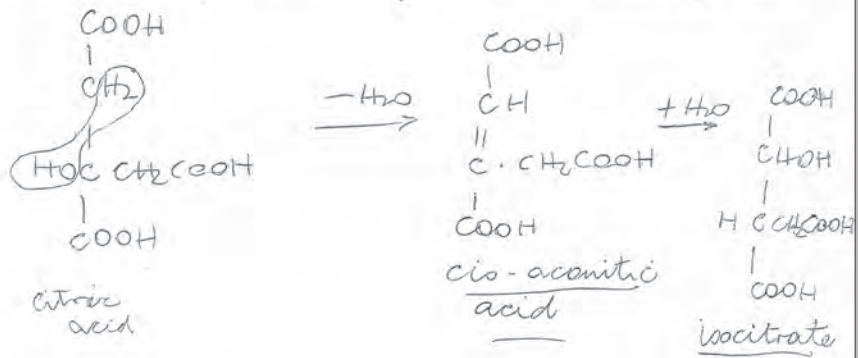 COOH
|
CH2
|
HOC CH2COOH
|
COOH
citric
acid
-H2O
COOH
|
CH
||
C · CH2COOH
|
COOH
cis-aconitic
acid
+H2O
COOH
|
CHOH
|
H C CH2COOH
|
COOH
isocitrate